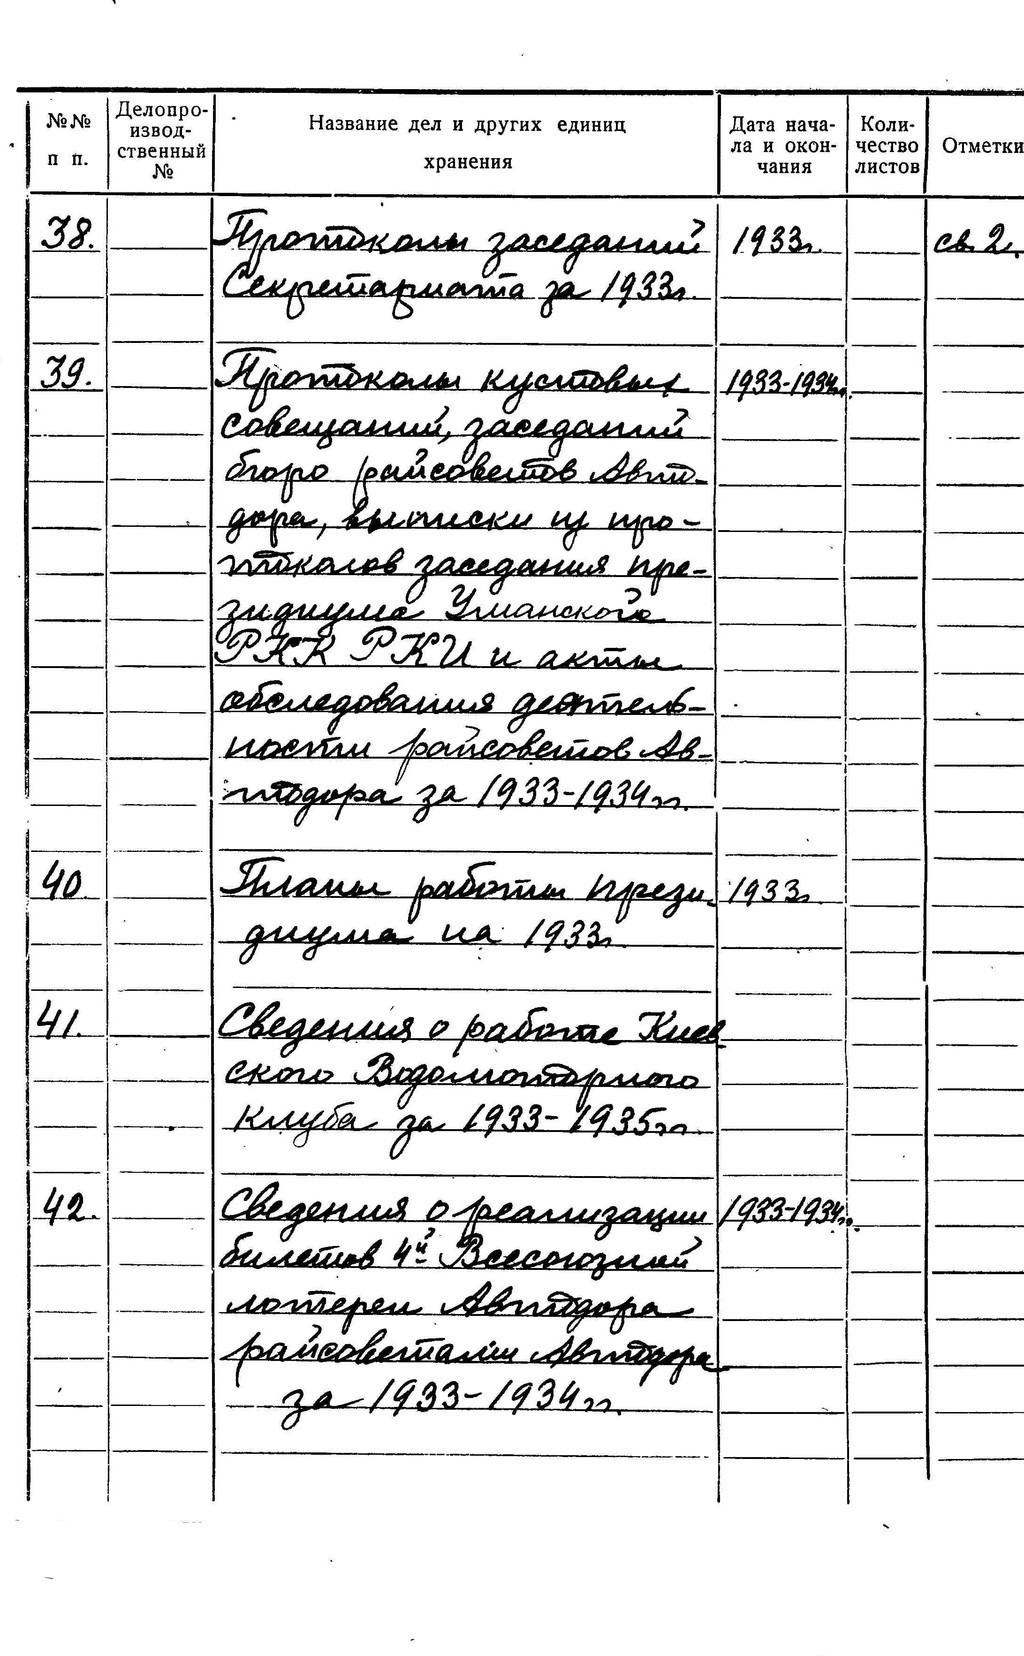 №№ п п.
Делопро-
извод-
ственный
№
Название дел и других единиц
хранения
Дата нача-
ла и окон-
чания
Коли-
чество
листов
Отметки
38. Протоколы заседаний 1933г. св. 2.
Секретариата за 1933г.
39. Протоколы кустовых 1933-1934гг.
совещаний, заседаний
бюро райсоветов Авто-
дора, выписки из про-
токолов заседания пре-
зидиума Уманского
РКК РКИ и акты
обследования деятель-
ности райсоветов Ав-
тодора за 1933-1934гг.
40. Планы работы прези- 1933г.
диума на 1933г.
41. Сведения о работе Киев-
ского Водомоторного
клуба за 1933-1935гг.
42. Сведения о реализации 1933-1934гг.
билетов 4й Всесоюзной
лотереи Автодора
райсоветами Автодора
за 1933-1934гг.